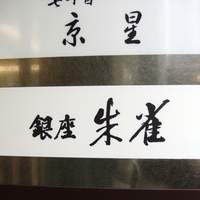 京星
銀座 朱雀